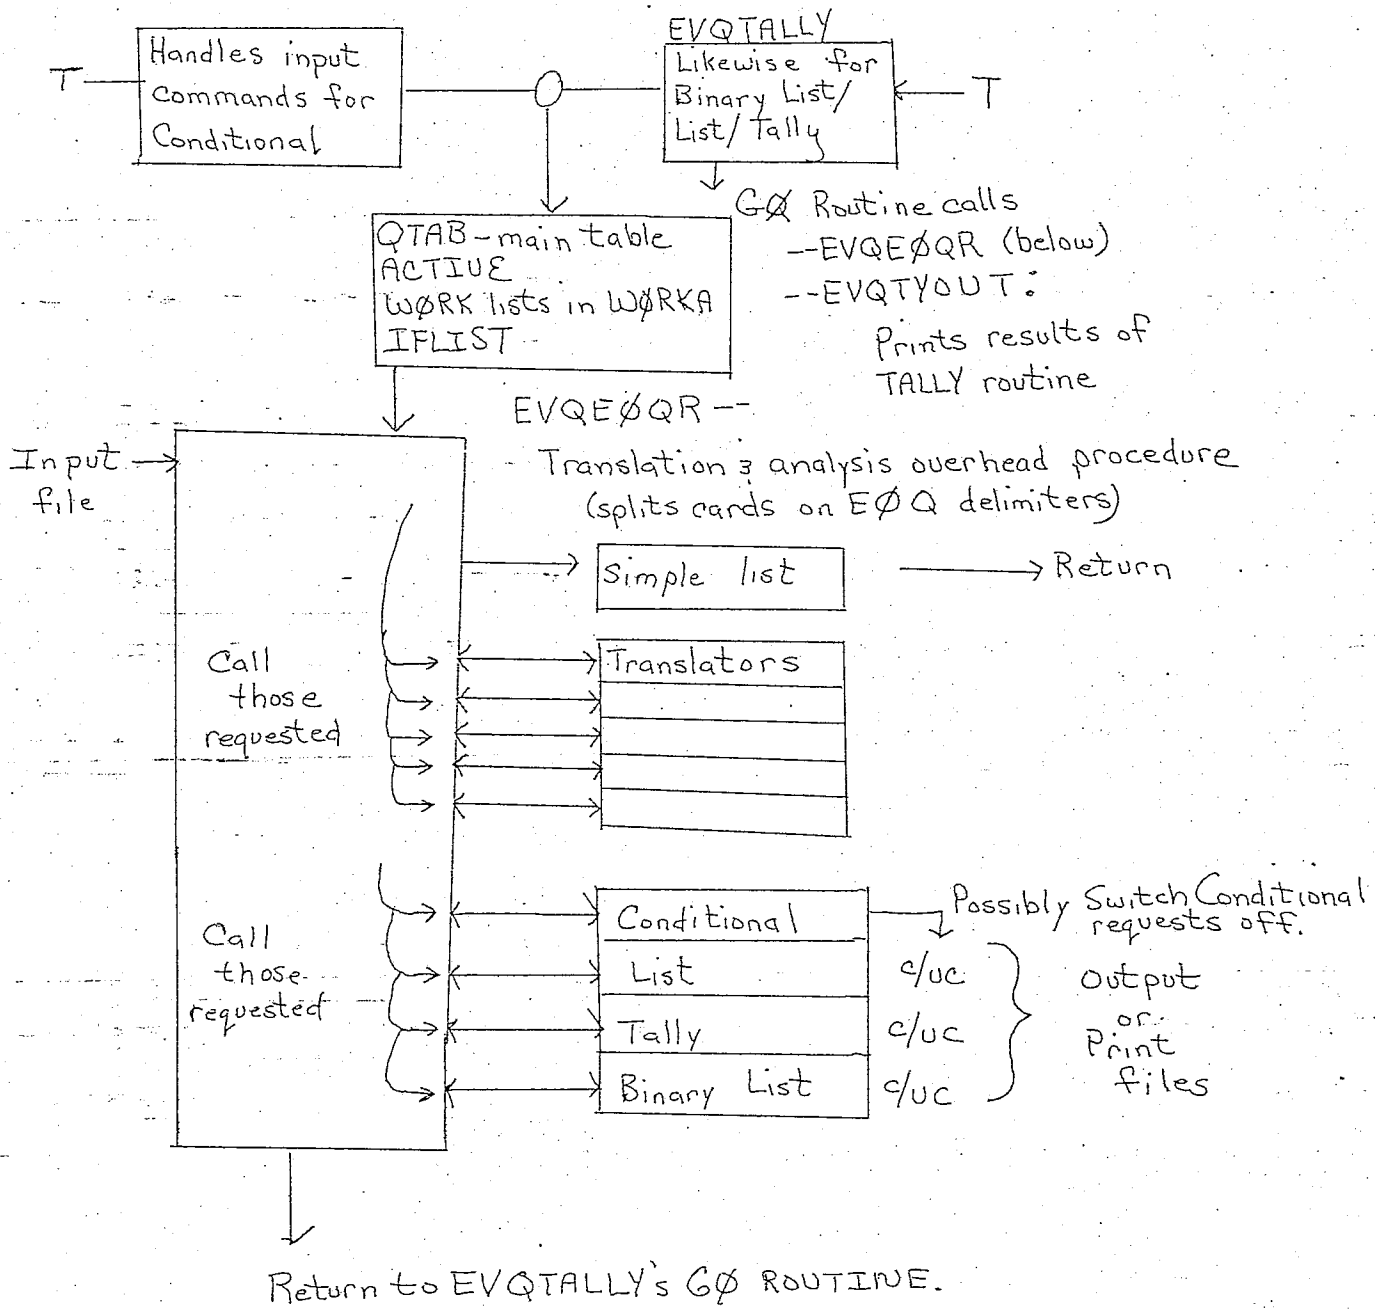 T
Handles input
commands for
Conditional
EVQTALLY
Likewise for
Binary List/
List/Tally
T
GØ Routine calls
--EVQEØQR (below)
--EVQTYOUT:
Prints results of
TALLY routine
QTAB-main table
ACTIVE
WØRK lists in WØRKA
IFLIST
EVQEØQR --
Translation & analysis overhead procedure
(splits cards on EØQ delimiters)
Input
file
Simple list
Return
Call
those
requested
Translators
Call
those
requested
Conditional
List
Tally
Binary List
Possibly Switch Conditional
requests off.
c/uc
c/uc
c/uc
Output
or
Print
files
Return to EVQTALLY's GØ ROUTINE.